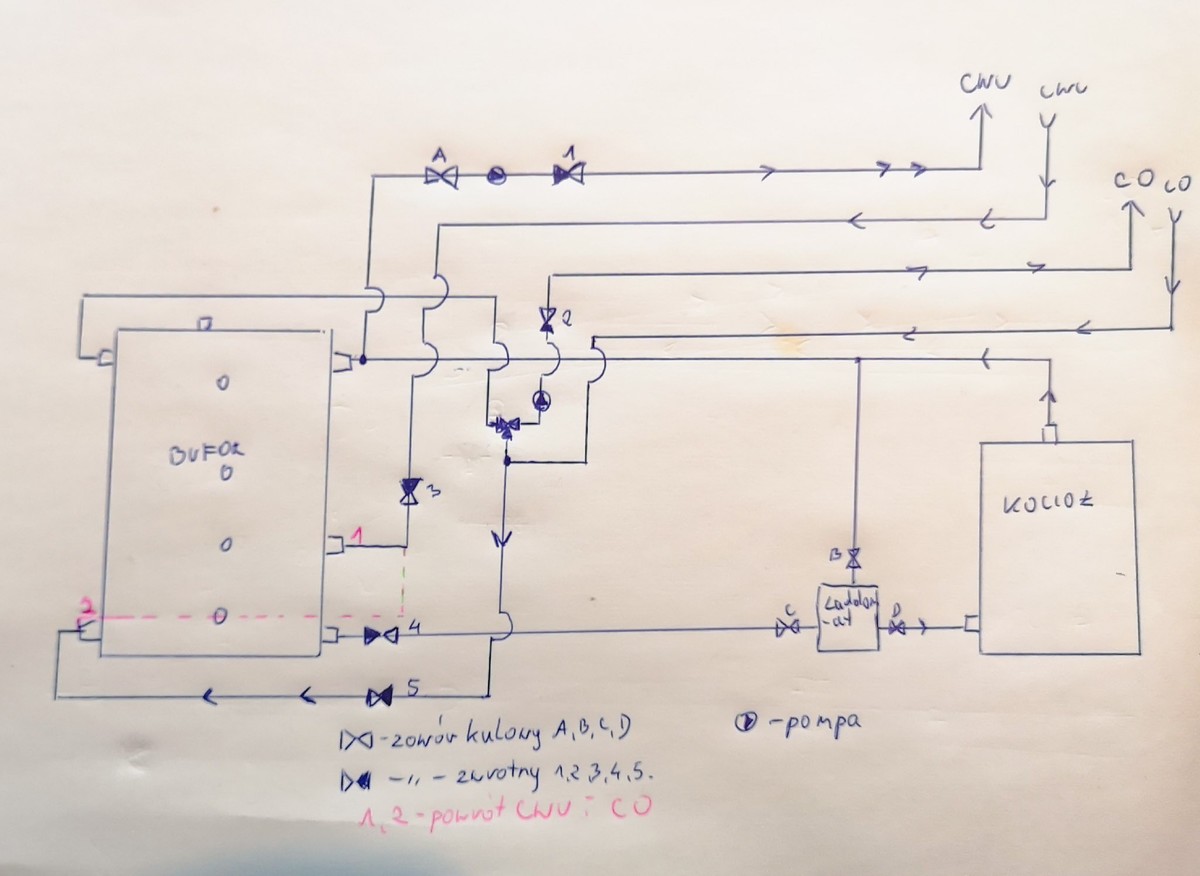 CWU CWU
CO CO
A 1
2
BUFOR
3
KOCIOŁ
1
B
2
C Laddom D
-at
4
5
-zawór kulowy A,B,C,D
-pompa
-„- zwrotny 1,2,3,4,5.
1,2-powrót CWU i CO